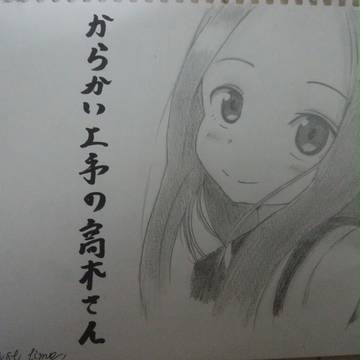 からかい上手の高木さん
time